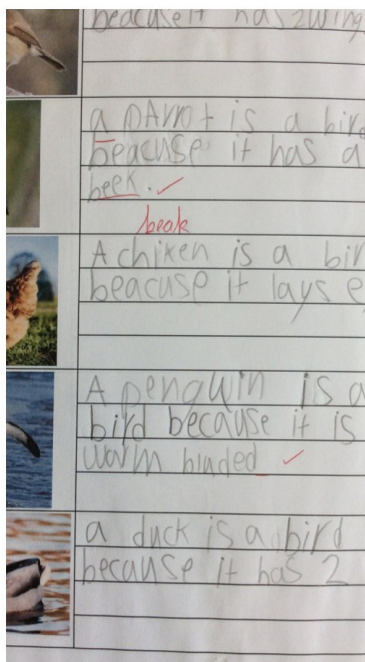 beacuse it has 2 wing
a pArrot is a bir
beacuse it has a
beek.
beak
A chiken is a bir
beacuse it lays e
A penguin is a
bird because it is
warm bluded
a duck is a bird
because it has 2